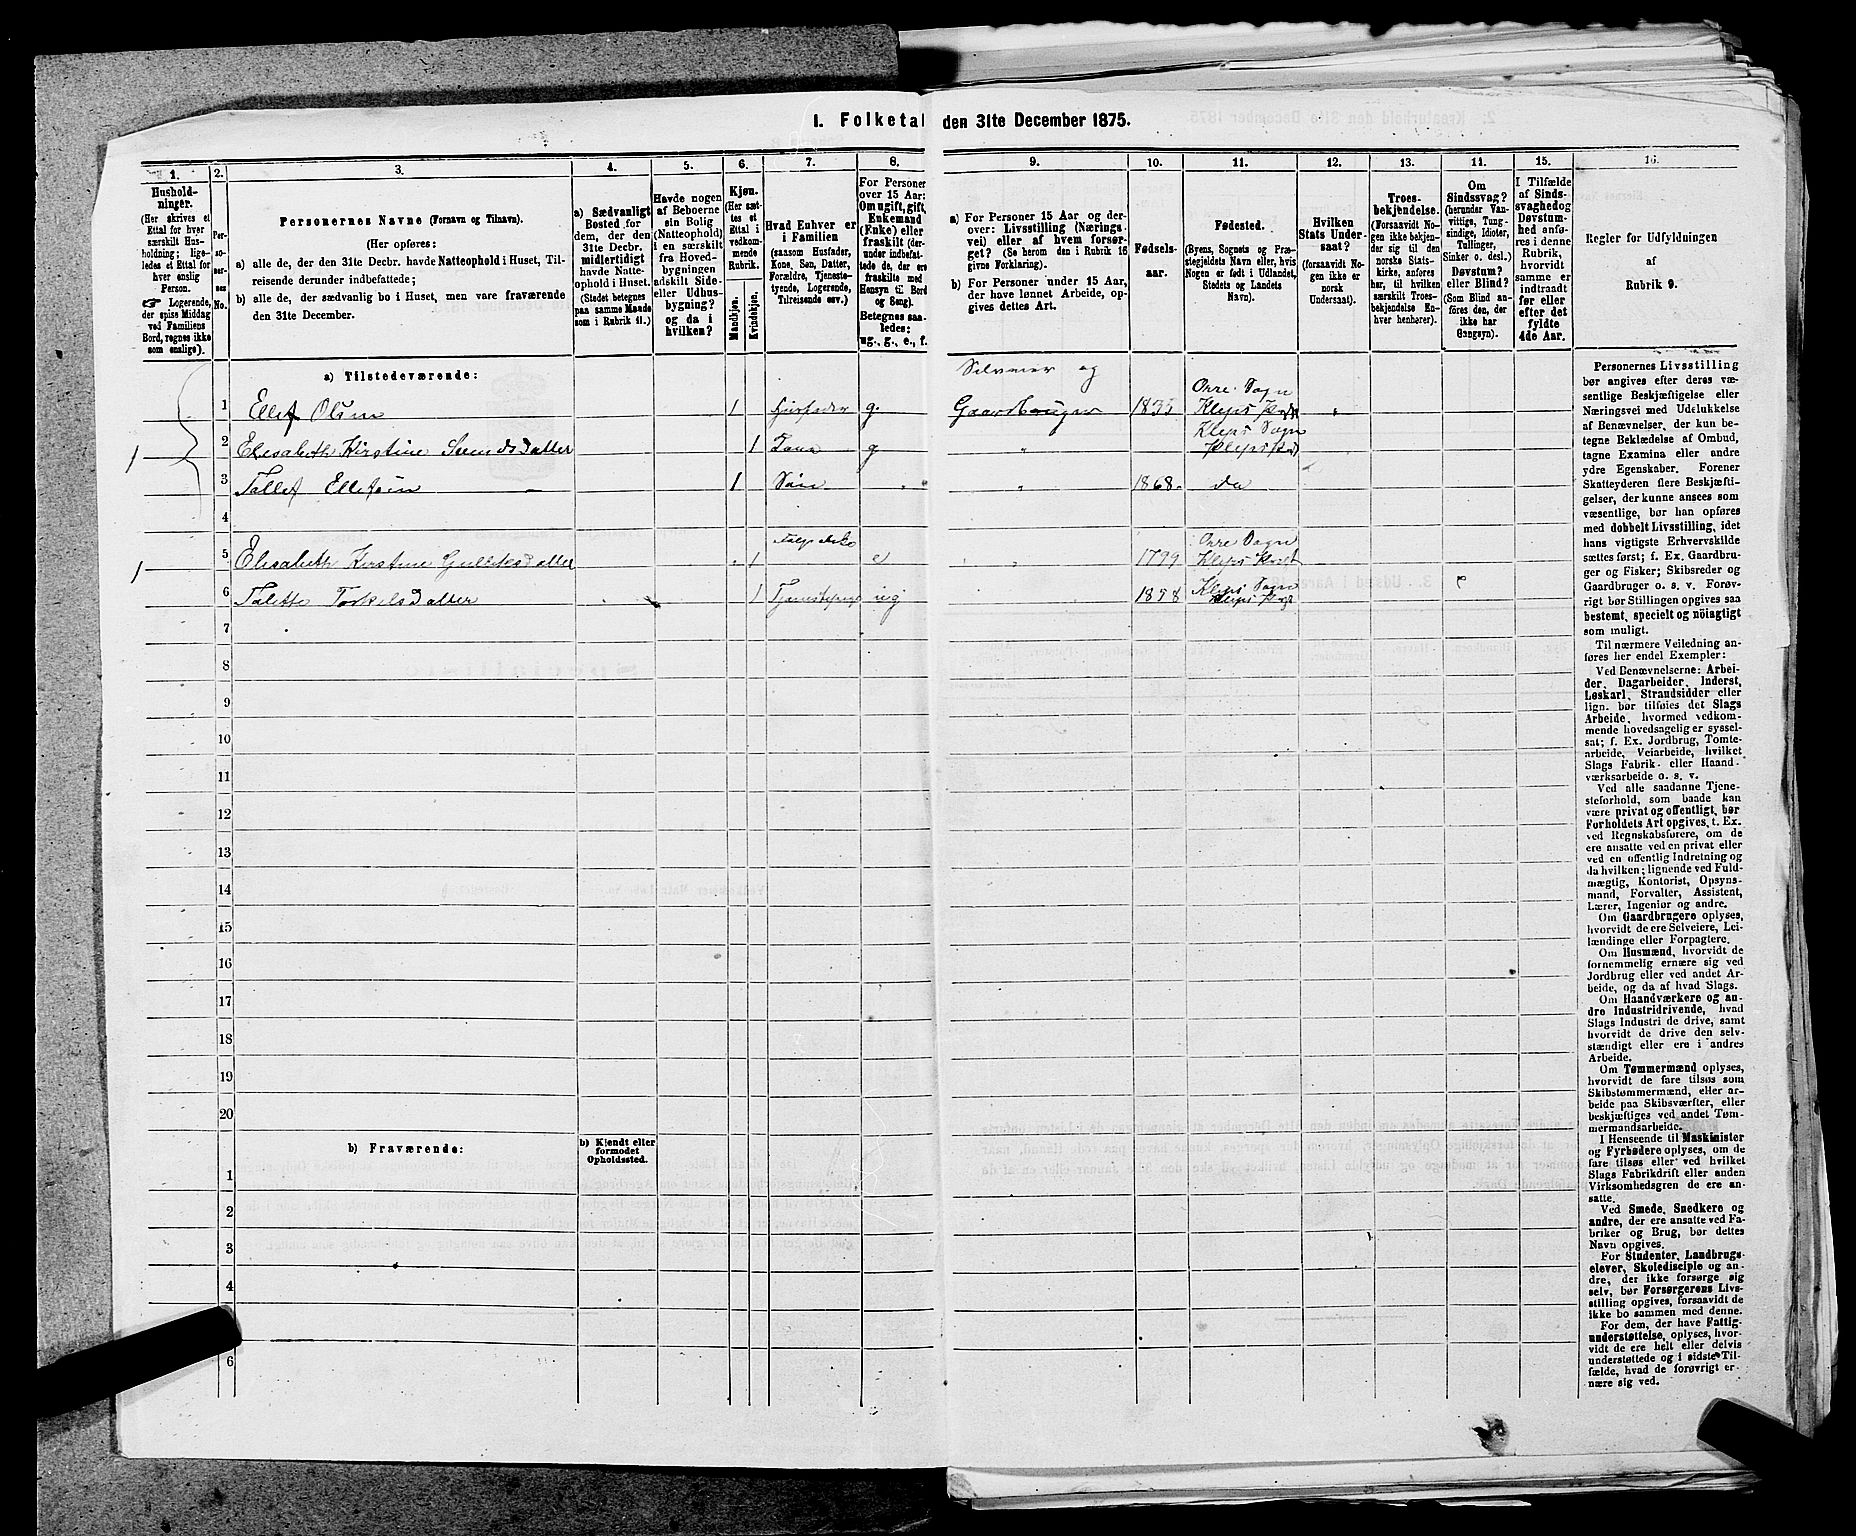 I. Folketal den 31te December 1875.
1.
2.
3.
4.
5.
6.
7.
8.
9.
10.
11.
12.
13.
11.
15.
16.
Hushold-
ninger.
(Her skrives et
Ettal for hver
særskilt Hus-
holdning; lige-
ledes et Ettal for
hver enslig
Person.
☞ Logerende,
der spise Middag
ved Familiens
Bord, regnes ikke
som enslige).
No.
Personernes Navne (Fornavn og Tilnavn).
(Her opføres:
a) alle de, der den 31te Decbr. havde Natteophold i Huset, Til-
reisende derunder indbefattede;
b) alle de, der sædvanlig bo i Huset, men vare fraværende
den 31te December.
a) Sædvanligt
Bosted for
dem, der den
31te Decbr.
midlertidigt
havde Natte-
ophold i Huset.
(Stedet betegnes
paa samme Maade
som i Rubrik 11.)
Havde nogen
af Beboerne
sin Bolig
(Natteophold)
i en særskilt
fra Hoved-
bygningen
adskilt Side-
eller Udhus-
bygning?
og da i
hvilken?
Kjøn.
(Her sæt-
tes et
Ettal i
vedkom-
mende
Rubrik.
Mandkjøn.
Kvindekjøn.
Hvad Enhver er
i Familien
(saasom Husfader,
Kone, Søn, Datter,
Forældre, Tjeneste-
tyende, Logerende,
Tilreisende osv.)
For Personer
over 15 Aar:
Om ugift, gift,
Enkemand
(Enke) eller
fraskilt (der-
under indbefat-
tede de, der ere
fraskilte med
Hensyn til Bord
og Seng).
Betegnes saa-
ledes:
ug., g., e., f.
a) For Personer 15 Aar og der-
over: Livsstilling (Nærings-
vei) eller af hvem forsør-
get? (Se herom den i Rubrik 16
givne Forklaring).
b) For Personer under 15 Aar,
der have lønnet Arbeide, op-
gives dettes Art.
Fødsels-
aar.
Fødested.
(Byens, Sognets og Præ-
stegjeldets Navn eller, hvis
Nogen er født i Udlandet,
Stedets og Landets
Navn).
Hvilken
Stats Under-
saat?
(forsaavidt No-
gen ikke er
norsk
Undersaat).
Troes-
bekjendelse.
(Forsaavidt No-
gen ikke bekjen-
der sig til den
norske Stats-
kirke, anføres
her, til hvilken
særskilt Troes-
bekjendelse En-
hver henhører).
Om
Sindssvag?
(herunder Van-
vittige, Tung-
sindige, Idioter,
Tullinger,
Sinker o. desl.)
Døvstum?
eller Blind?
(Som Blind an-
føres den, der
ikke har
Gangsyn).
I Tilfælde
af Sinds-
svaghed og
Døvstum-
hed anfø-
res i denne
Rubrik,
hvorvidt
samme er
indtraadt
før eller
efter det
fyldte
4de Aar.
Regler for Udfyldningen
af
Rubrik 9.
a) Tilstedeværende:
Selveier og
1 Ellef Olsen 1 Husfader g. Gaardbruger 1835 Orre Sogn Kleps Præst
1 2 Elisabeth Kirstine Svendsdatter 1 Kone g " Kleps Sogn Kleps Præst
3 Tollef Ellefsen 1 Søn " 1868. do
4
1 5 Elisabeth Kirstine Gulliksdatter 1 e " 1799 Orre Sogn Kleps Præst
6 Talette Torkelsdatter 1 ug 1858 Kleps Sogn Kleps Præst
7
8
9
10
11
12
13
14
15
16
17
18
19
20
b) Fraværende:
b) Kjendt eller
formodet
Opholdssted.
1
2
3
4
6
Personernes Livsstilling
bør angives efter deres væ-
sentlige Beskjæftigelse eller
Næringsvei med Udelukkelse
af Benævnelser, der kun be-
tegne Beklædelse af Ombud,
tagne Examina eller andre
ydre Egenskaber. Forener
Skatteyderen flere Beskjæfti-
gelser, der kunne ansees som
væsentlige, bør han opføres
med dobbelt Livsstilling, idet
hans vigtigste Erhvervskilde
sættes først; f. Ex. Gaardbru-
ger og Fisker; Skibsreder og
Gaardbruger o. s. v. Forøv-
rigt bør Stillingen opgives saa
bestemt, specielt og nöiagtigt
som muligt.
Til nærmere Veiledning an-
føres her endel Exempler:
Ved Benævnelserne: Arbei-
der, Dagarbeider, Inderst,
Løskarl, Strandsidder eller
lign. bør tilføies det Slags
Arbeide, hvormed vedkom-
mende hovedsagelig er syssel-
sat; f. Ex. Jordbrug, Tomte-
arbeide, Veiarbeide, hvilket
Slags Fabrik- eller Haand-
værksarbeide o. s. v.
Ved alle saadanne Tjene-
steforhold, som baade kan
være privat og offentligt, bør
Forholdets Art opgives, t. Ex.
ved Regnskabsførere, om de
ere ansatte ved en privat eller
ved en offentlig Indretning og
da hvilken; lignende ved Fuld-
mægtig, Kontorist, Opsyns-
mand, Forvalter, Assistent,
Lærer, Ingeniør og andre.
Om Gaardbrugere oplyses,
hvorvidt de ere Selveiere, Lei-
lændinge eller Forpagtere.
Om Husmænd, hvorvidt de
fornemmelig ernære sig ved
Jordbrug eller ved andet Ar-
beide, og da af hvad Slags.
Om Haandværkere og an-
dre Industridrivende, hvad
Slags Industri de drive, samt
hvorvidt de drive den selv-
stændigt eller ere i andres
Arbeide.
Om Tømmermænd oplyses,
hvorvidt de fare tilsøs som
Skibstømmermænd, eller ar-
beide paa Skibsværfter, eller
beskjæftiges ved andet Tøm-
mermandsarbeide.
I Henseende til Maskinister
og Fyrbødere oplyses, om de
fare tilsøs eller ved hvilket
Slags Fabrikdrift eller anden
Virksomhedsgren de ere an-
satte.
Ved Smede, Snedkere og
andre, der ere ansatte ved Fa-
briker og Brug, bør dettes
Navn opgives.
For Studenter, Landbrugs-
elever, Skoledisciple og an-
dre, der ikke forsørge sig
selv, bør Forsørgerens Livs-
stilling opgives, forsaavidt de
ikke bo sammen med denne.
For dem, der have Fattig-
understøttelse, oplyses, hvor-
vidt de ere helt eller delvis
understøttede og i sidste Til-
fælde, hvad de forøvrigt er-
nære sig ved.